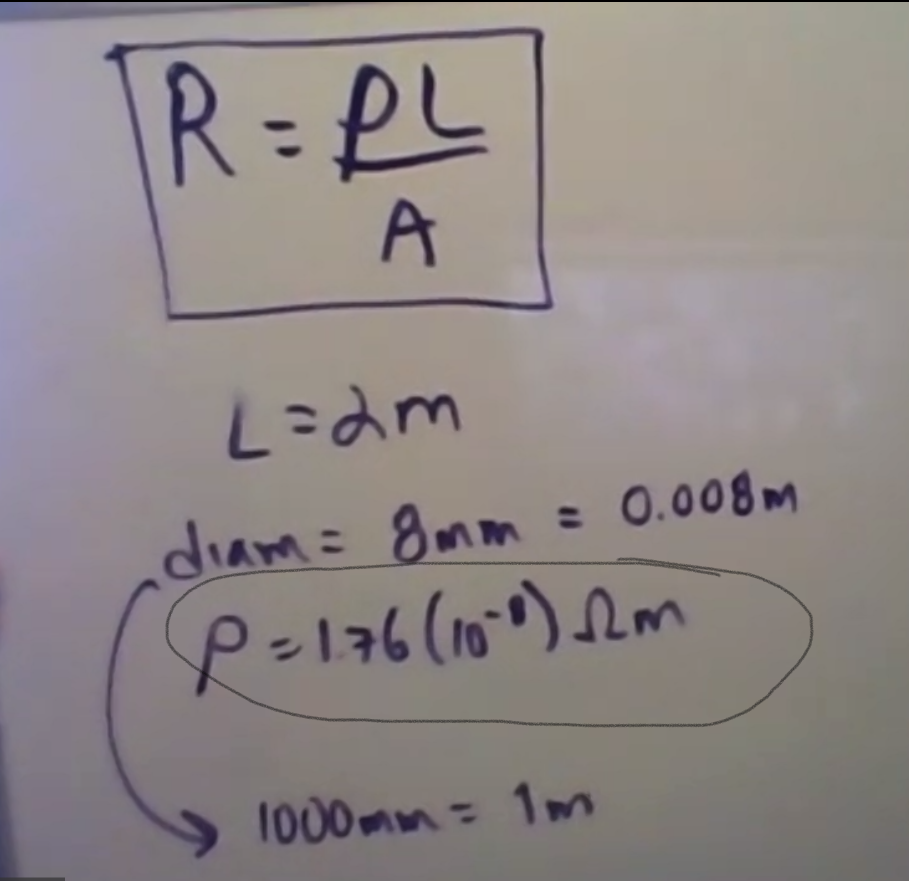 R = ρL
A
L = 2m
diam = 8mm = 0.008m
ρ = 1.76 (10⁻⁸) Ωm
1000mm = 1m